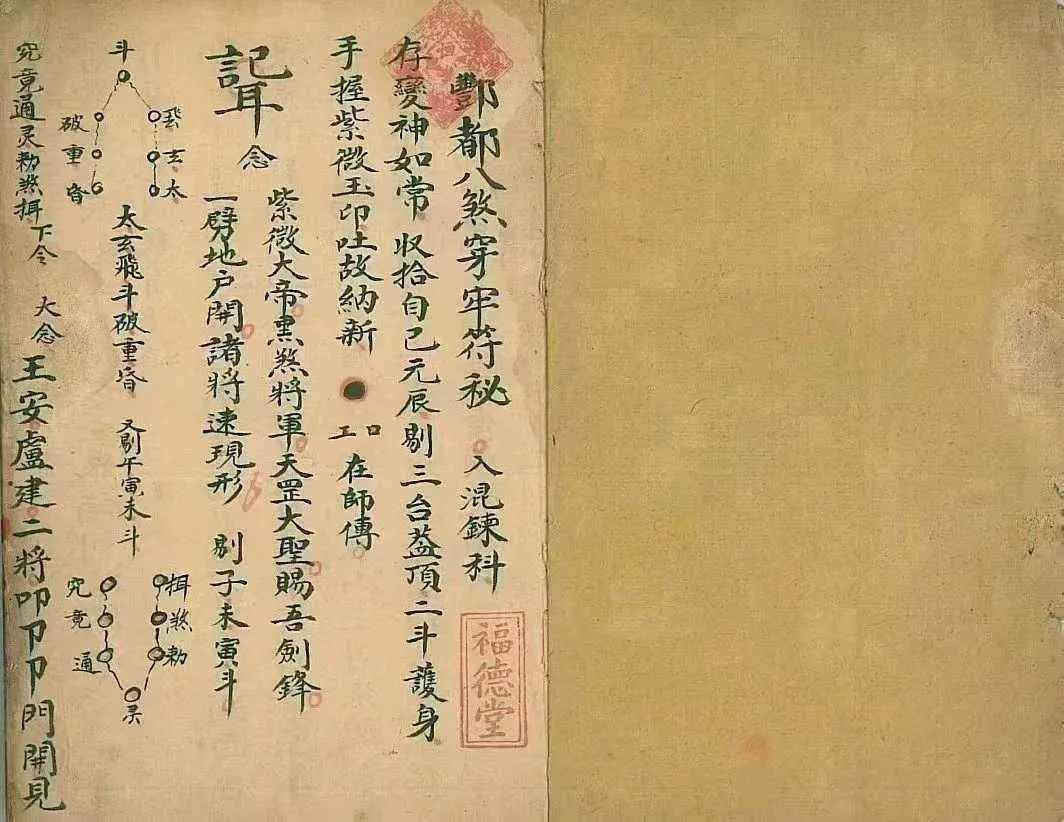 酆都八煞穿牢符秘 入混鍊科
福德堂
存變神如常 収拾自己元辰剔三台蓋頂二斗護身
手握紫微玉印吐故納新 工口 在師傳
念
紫微大帝黑煞將軍天罡大聖賜吾劍鋒
一劈地户開諸將速現形 剔子未寅斗
斗
飛玄太
破重昏
太玄飛斗破重昏 又剔午寅未斗
揖煞勅
究竟通
灵
究竟通灵勅煞揖下令 大念
王安盧建二將叩卩卩門開見